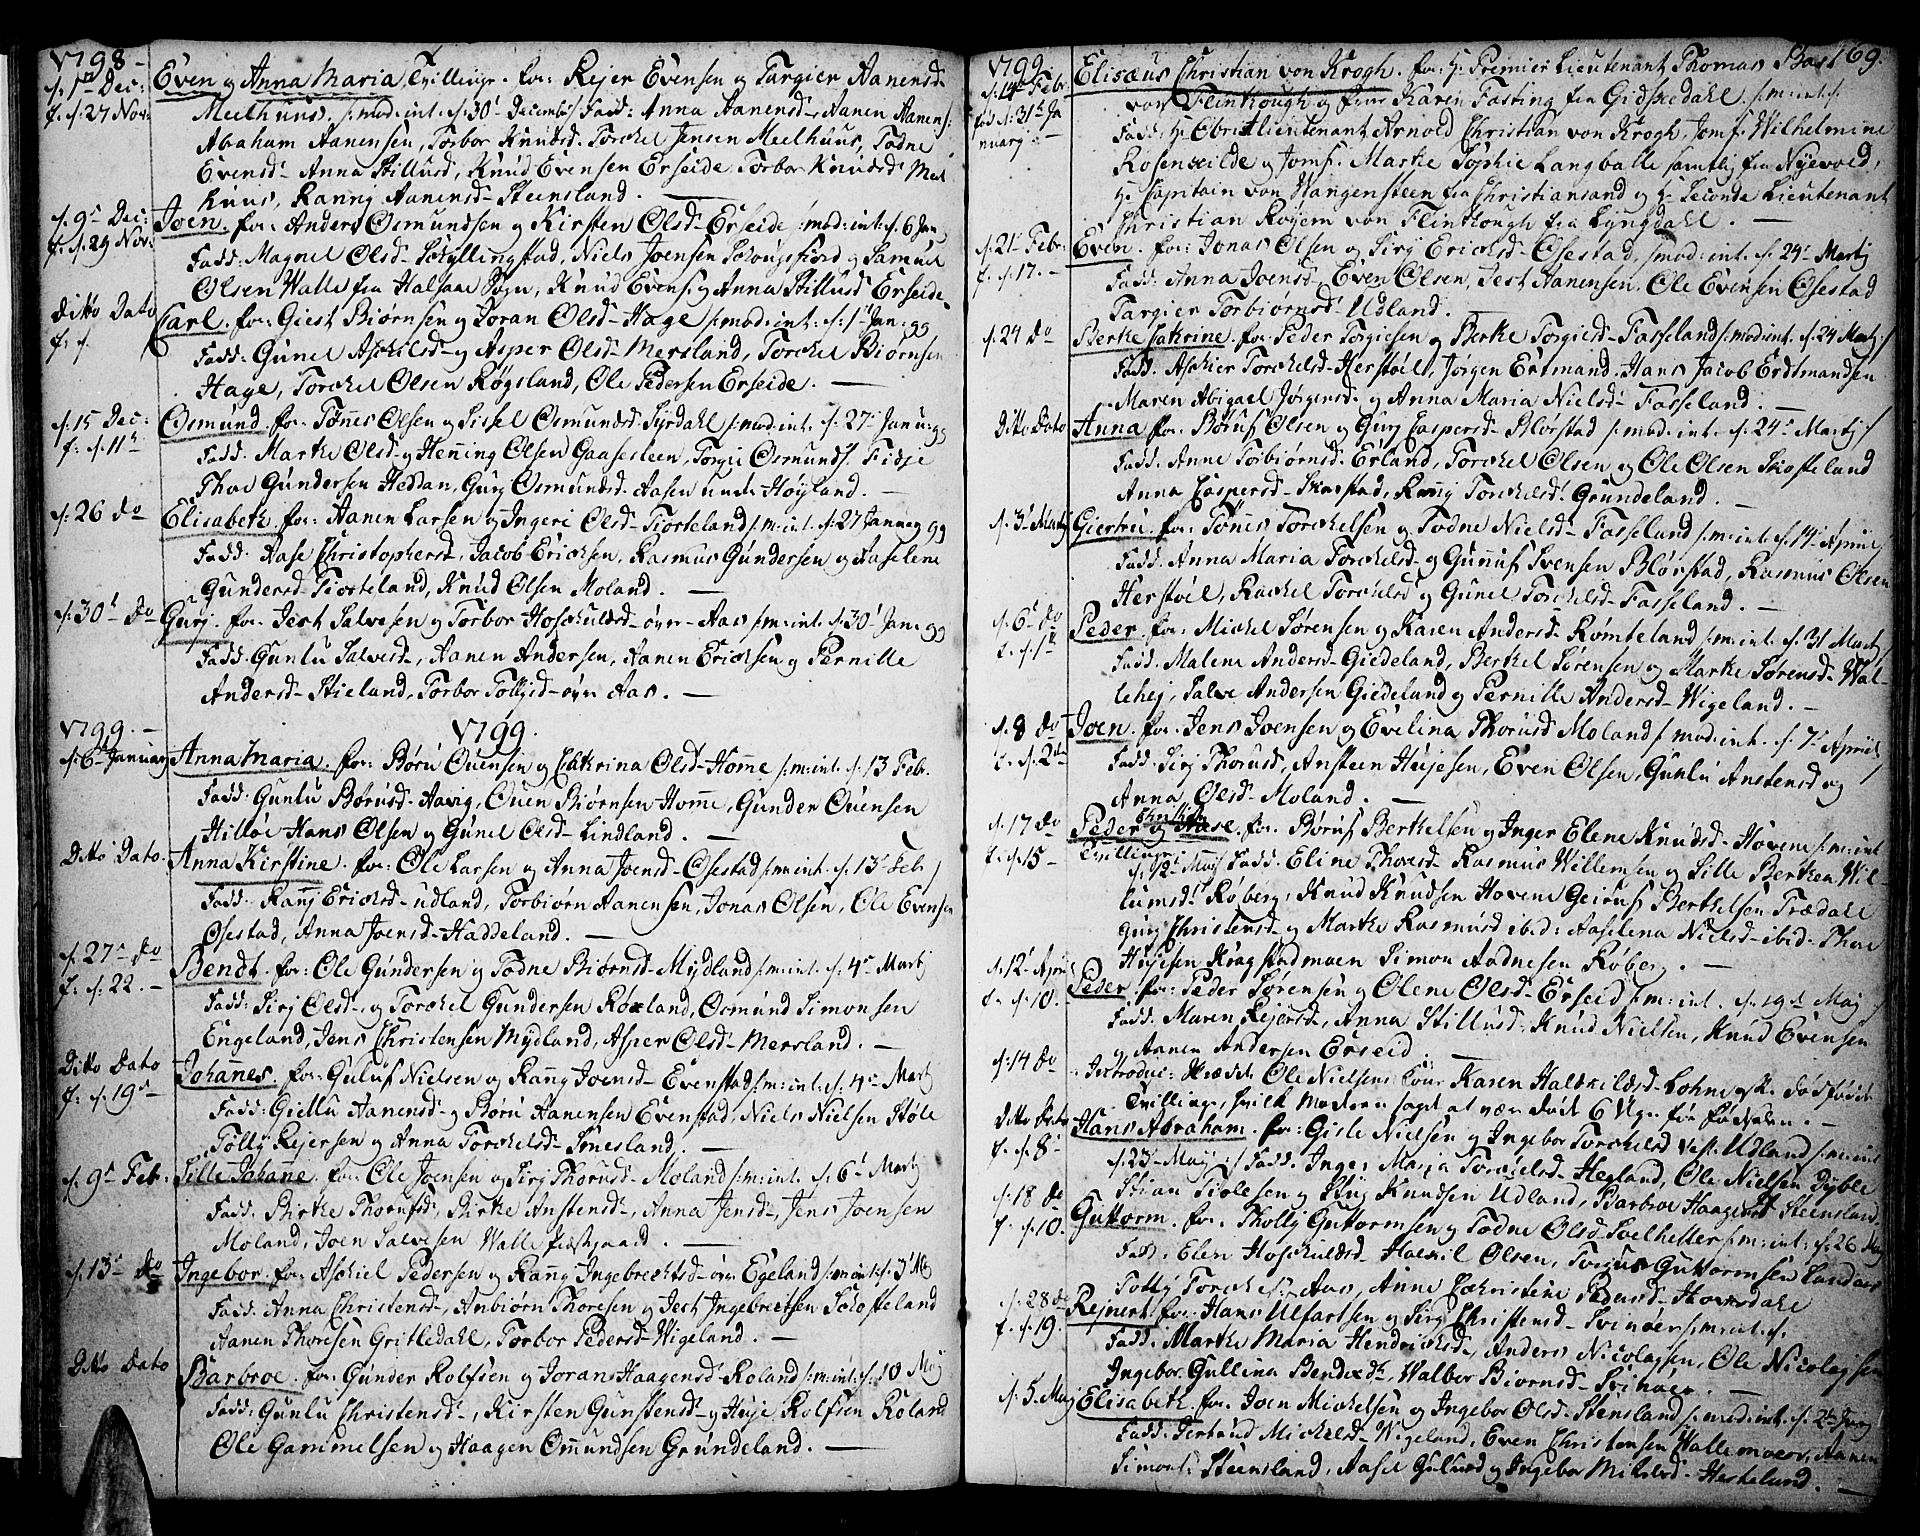 1798.
d. 1te Dec: Even og Anna Maria, Tvillinger. for: Rejer Evensen og Targier Aanensd-
f. d. 27 Nov: Meelhuus. /: mod: int: d. 30t Decemb:/ Fadd: Anna Aanensd- Aanen Aanens:
Abraham Aanensen, Torbor Knudsd. Torchel Jensen Meelhuus, Todne
Evensd- Anna Stillusd, Knud Evensen Erseide Torbor Knudsd Meel
huus, Ranny Aanensd- Steensland.
d. 9t Dec: Joen. for: Anders Osmundsen og Kirsten Olsd- Erseide /: mod: int: d. 6 Jan,
f. d. 29 Nov: Fadd: Magnel Olsd- Schyllingstad, Niels Joensen Schougsfiord og Samuel
Olsen Walle fra Halsaae Sogn, Knud Evens: og Anna Stillusd Erseide
Ditto Dato Carl. for: Giest Biørnsen og Joran Olsd- Hage /: mod: int: d. 1t Jan: 99
Fadd: Gunel Aschilsd- og Asper Olsd- Mersland, Torchel Biørnsen
Hage, Torchel Olsen Røgsland, Ole Pedersen Erseide.
d. 15 Dec: Osmund. for: Tønnes Olsen og Sissel Osmundsd- Syrdahl /: mod: int. d. 27 Janu: 99
f. d. 11t Fadd: Marthe Olsd- og Henning Olsen Gaasesleen, Torgri Osmunds. Fidje
Thor Gundersen Heddan, Gurj Osmundsd- Aasen under Høyland.
d. 26 do Elisabeth. for: Aanen Larsen og Ingeri Olsd- Tiorteland /: m: int: d. 27 Januarj 99
Fadd: Aase Christophersd-, Jacob Erichsen, Rasmus Gundersen og Aaselene
Gundersd- Tiorteland, Knud Olsen Moland.
d. 30t do Gurj. for: Jest Salvesen og Torbor Hoschuldsd- øvre- Aas /: m: int: d. 30t Jan: 99
Fadd: Gunlu Salvesd-, Aanen Andersen, Aanen Erichsen og Pernille
Andersd- Stieland, Torbor Tollisd- øvr Aas.
1799. 1799.
d. 6t Januarj Anna Maria. for: Børu Ouensen og Cathrina Olsd- Homme /: m: int: d. 13 Feb.
Fadd: Gunlu Børusd- Aavig, Ouen Biørnsen Homme, Gunder Ouensen
Hilløe Hans Olsen og Gunel Olsd- Lindland.
Ditto Dato. Anna Kirstine. for: Ole Larsen og Anna Joensd- Osestad /: m: int. d. 13t Feb
Fadd: Ranj Erichsd- Udland, Torbiørn Aanensen, Jonas Olsen, Ole Evensen
Osestad, Anna Joensd- Haddeland.
d. 27t do Bendt. for: Ole Gundersen og Todne Biørnsd- Mydland /: m: int. d. 4t Martj
f. d. 22. Fadd: Sirj Olsd-, og Torchel Gundersen Røxland, Osmund Simonsen
Engeland, Jens Christensen Mydland, Asper Olsd- Mersland.
Ditto Dato Johannes. for: Guluf Nielsen og Ranj Joensd- Evenstad /: m: int: d. 4t Mart
f. d. 19t Fadd: Giellu Aanensd- og Børu Aanensen Evenstad, Niels Nielsen Støle
Tolly Rejersen og Anna Torchelsd- Imesland.
d. 9t Feb: Sille Johanne. for: Ole Joensen og Sirj Thorusd- Moland /: m: int: d. 6t Martj
Fadd. Birthe Thorufsd- Birthe Anstensd-, Anna Jensd-, Jens Joensen
Moland, Joen Salvesen Walle Præstgaard.
d. 13t do Ingebor. for: Aschiel Pedersen og Ranj Ingebrechtsd- øvr Egeland /: m: int: d. 3
Fadd: Anna Christensd-, Anbiørn Thoresen og Jest Ingebretsen Schofteland
Aanen Thoresen Gritledahl, Torbor Pedersd- Wigeland.
Ditto Dato Barbroe. for: Gunder Rolfsen og Joran Haagensd- Roland /: m: int: d. 10 Maj
Fadd: Gunlu Christensd-, Kirsten Gunstensd- og Huje Rolfsen Roland
Ole Gammelsen og Haagen Omundsen Grundeland.
169.
1799.
d. 14t Febr. Elisæus Christian von Krogh. for: Hr. Premier Lieutenant Thomas
fød d. 31t Ja nuarj von Flinthough og Frue Karen Fasting fra Gidskedahl. /: m: int: d.
Fadd: Hr. Obristlieutenant Arnold Christian von Krogh, Jomf. Wilhelmine
Rosenkilde og Jomf. Marthe Sophie Langballe samtlig fra Nyevold,
Hr. Captain von Wangensteen fra Christiansand og Hr. Seconde Lieutenant
Christian Rojem von Flinthough fra Lyngdahl.
d. 21t Febr: Even. for: Jonas Olsen og Sirj Erichsd- Osestad, /: mod: int. d. 24t Martj
f. d. 17. Fadd: Anna Joensd- Even Olsen, Jest Aanensen, Ole Evensen Osestad
Targier Torbiørnsd- Udland.
d. 24 do Berthe Cathrine. for: Peder Torgiesen og Berthe Torgiesd- Fasseland /: mod: int. d. 24 Martj
Fadd. Aschier Torchelsd- Herstøel, Jørgen Ertmand, Hans Jacob Erdtmandsen
Maren Abigael Jørgensd. og Anna Maria Nielsd- Fasseland.
Ditto Dato Anna for: Børuf Olsen og Gurj Caspersd- Blørstad /: mod: int. d. 24t Martj:/
Fadd. Anne Torbiørnsd- Erland, Torchel Olsen og Ole Olsen Skofteland
Anna Caspersd- Skarstad, Ranj Torchelsd- Grundeland.
d. 3t Martj Giertru. for: Tønnes Torchelsen og Todne Nielsd- Fasseland /: m: int. d. 14t April
Fadd. Anna Maria Torchelsd- og Gunnuf Svensen Blørstad, Rasmus Olsen
Herstøel, Rachel Torchelsd og Gunel Torchelsd- Fasseland.
d. 6t do Peder. for: Michel Sørensen og Karen Andersd- Romteland /: m: int. d. 31 Martj
f. d. 1t Fadd. Malene Andersd- Giedeland, Berthel Sørensen og Marthe Sørensd- Wal-
lehej, Salve Andersen Giedeland og Pernille Andersd- Wigeland.
d. 8 do Joen. for: Jens Joensen og Evelina Thorusd Moland /: mod: int. d. 7t April
f. d. 2t Fadd: Sirj Thorusd, Ansteen Hujesen, Even Olsen, Gunlu Anstensd og
Anna Olsd- Moland.
d. 17 do Peder og Aase. for. Børuf Berthelsen og Inger Elene Knudsd- Hovene /: m: int
f. d. 15 Tvillinger d. 12t Maj Fadd. Eline Thoresd- Rasmus Willemsen og Sille Berthea Wil-
lumsd- Røberg, Knud Knudsen Hovene Geiruf Berthelsen Trædahl
Gurj Christensd- og Marthe Rasmusd ibid: Aaselena Nielsd- ibid. Thor
Hujesen Kragstadmoen Simon Aadnesen Røberg.
d. 12t April Peder. for: Peder Sørensen og Olene Olsd- Erseid /: m: int. d. 19t Maj
f. d. 10. Fadd. Maren Rejersd-, Anna Stillusd- Knud Nielsen, Knud Evensen
og Aanen Andersen Erseid
d. 14 do Introduc: Ole Nielsens Karen Halskildsd- Lohne dødfødde
Tvillinger, hvilk Moderen saget at være døde 6 Uger før Fødselen.
Ditto Dato Hans Abraham. for: Gisle Nielsen og Ingebor Torchelsd Vest Udland /: m: int
f. d. 8t d. 23t Maj:/ Fadd. Inger Marja Torchelsd- Hegland, Ole Nielsen Dyble
Stian Tiølesen og Stig Knudsen Udland, Barbroe Haagensd Steensland
d. 18 do Guttorm. for: Tholly Guttormsen og Todne Olsd- Toelhetter /: m: int: d. 26 Maj
f. d. 10. Fadd: Elen Hoschuldsd- Halvil Olsen, Guttormsen Landaas
Tolly Torchels: Aas, Anne Cathrine Pedersd- Hovsdahl
d. 28 do Rejnert. for: Hans Ulfartsen og Sirj Christensd- Svinøer /: m: int. d.
f. d. 19. Fadd: Marthe Maria Hendrichsd-, Anders Nicolajsen, Ole Nicolajsen
Ingebor Gullina Bendixd- Walbor Biørnsd- Svinøer.
d. 5. Maj Elisabeth. for. Joen Michelsen og Ingebor Olsd- Stensland /: mod: int. d. 2t Junj
Fadd: Gertrud Michelsd- Wigeland, Even Christensen Wallemoen, Aanen
Simons: Steensland, Aase Gulusd og Ingebor Mikelsd- Haskeland.